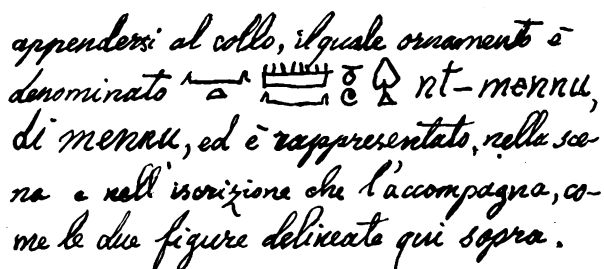 appendersi al collo, il quale ornamento è
denominato nt-mennu,
di mennu, ed è rappresentato, nella sce-
na e nell'iscrizione che l'accompagna, co-
me le due figure delineate qui sopra.